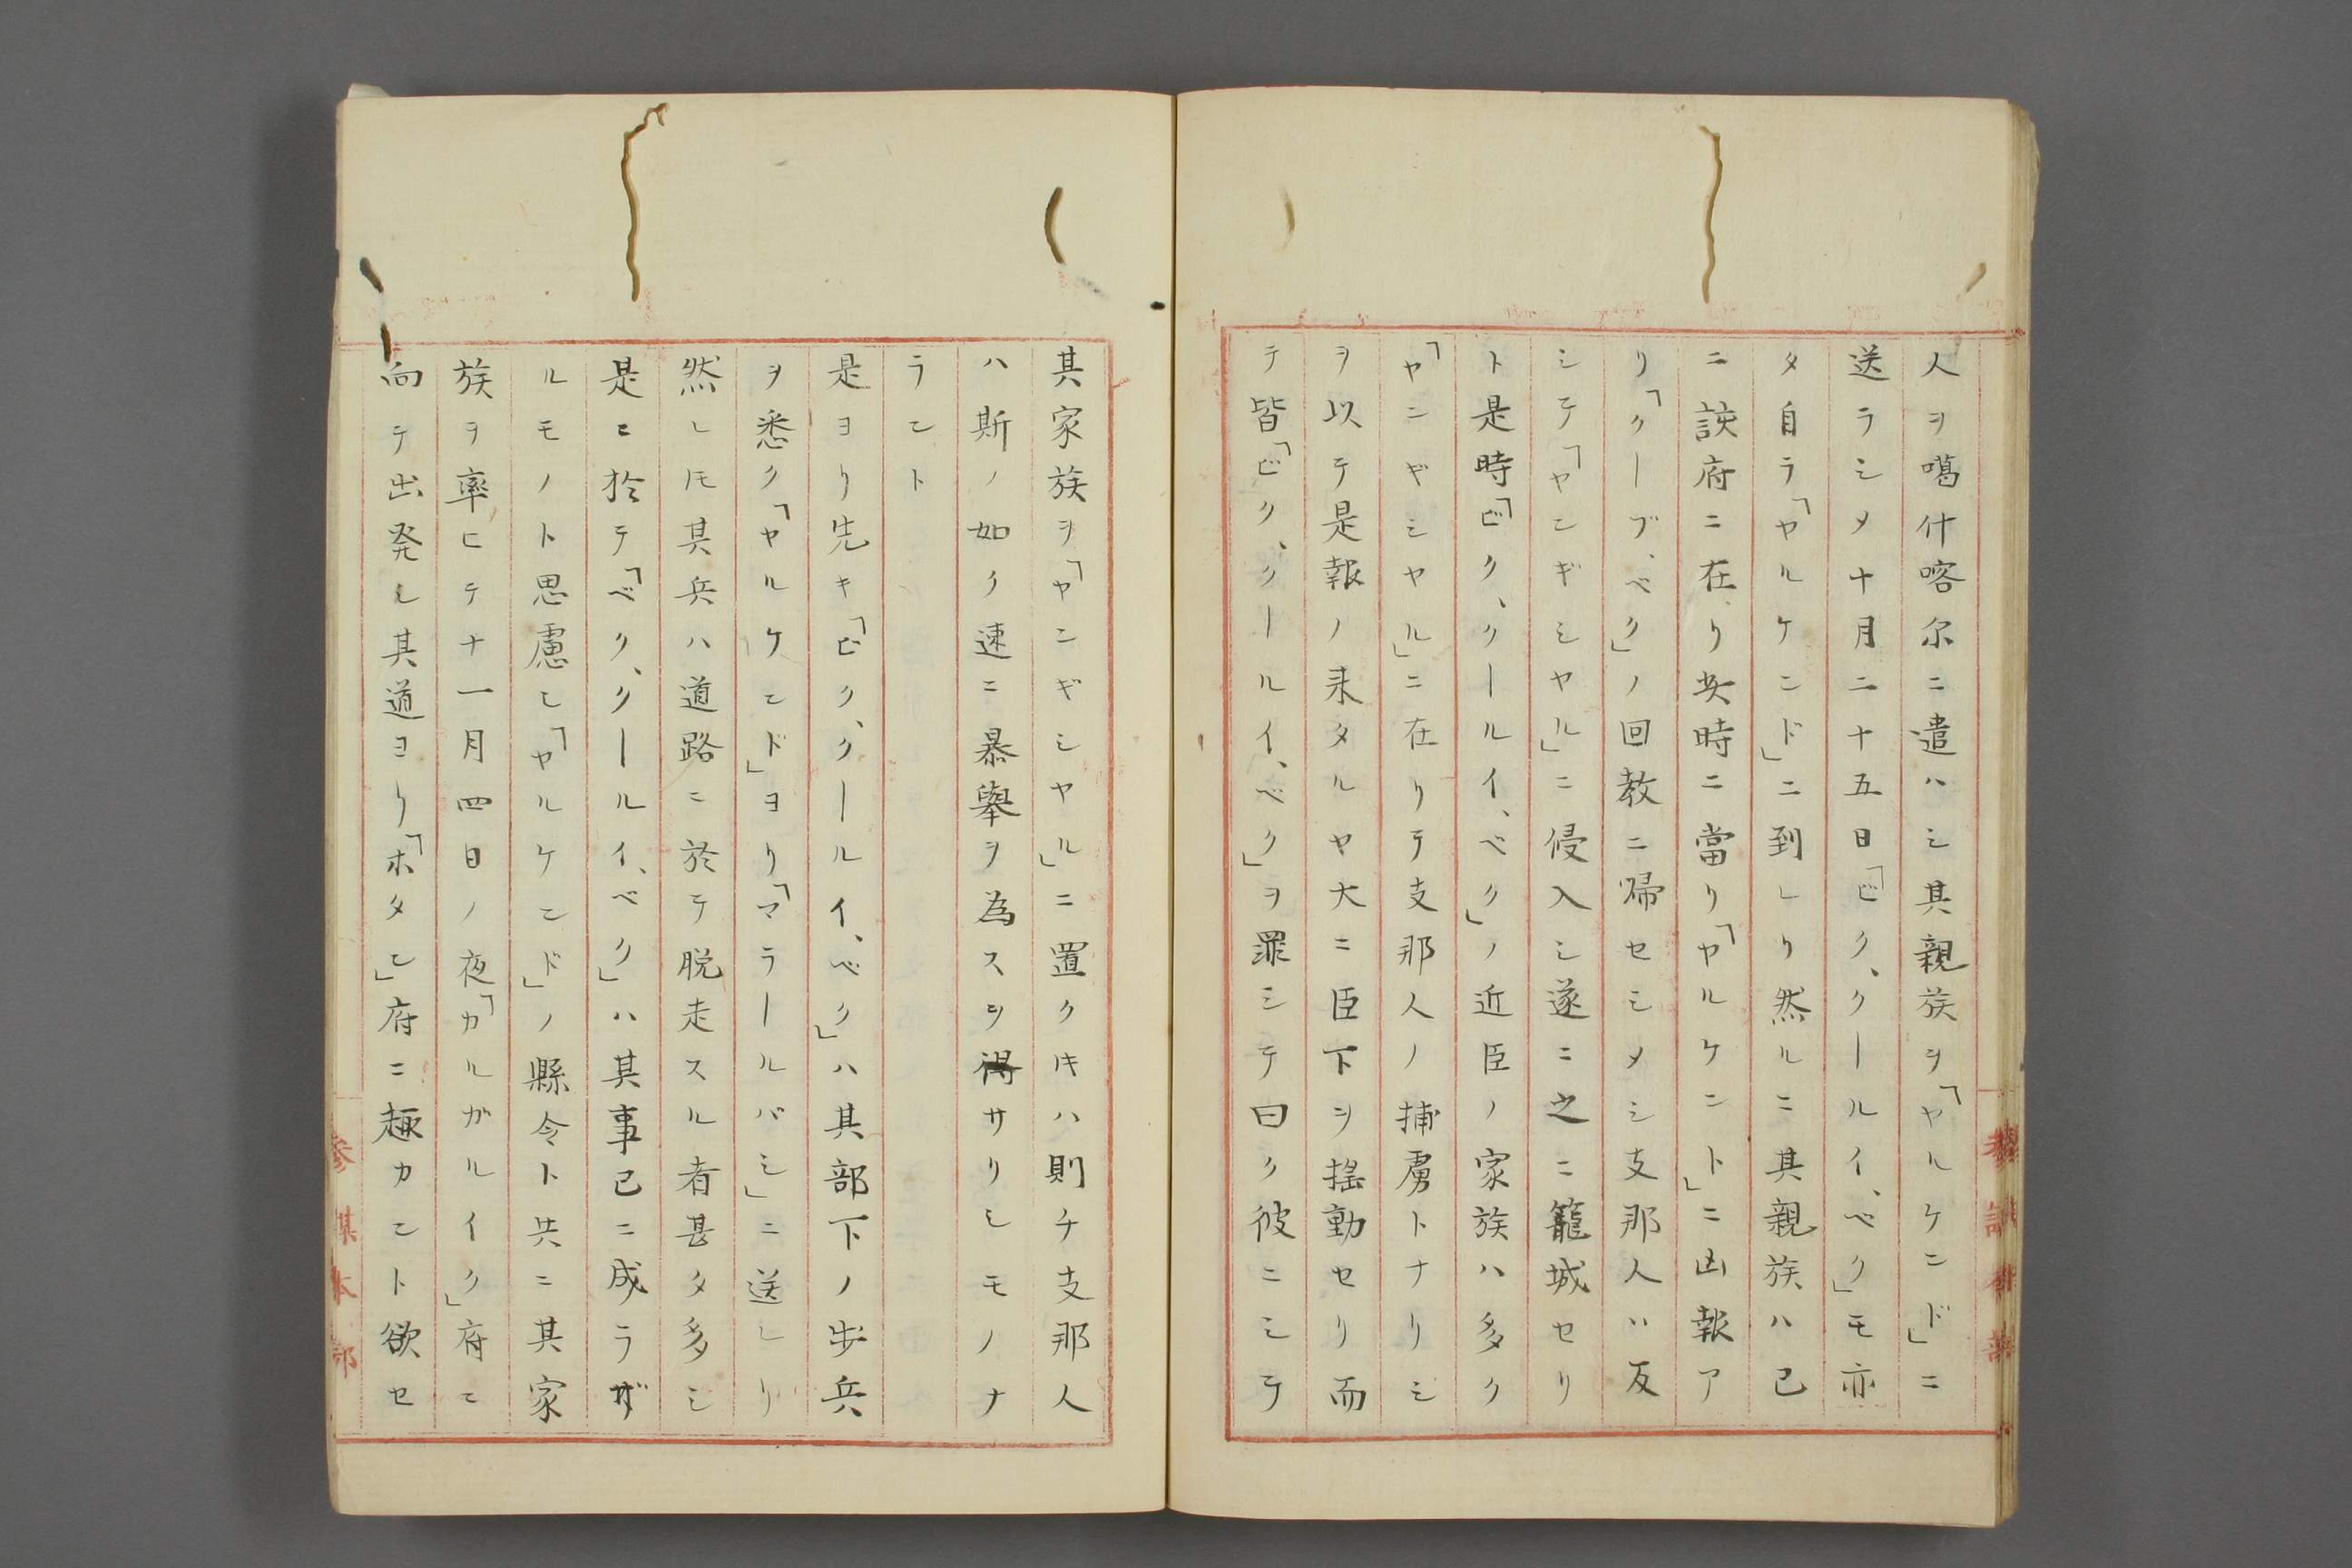 人ヲ噶什喀尓ニ遣ハシ其親族ヲ「ヤルケンド」ニ
送ラシメ十月二十五日「ビク、クールイ、ベク」モ亦
タ自ラ「ヤルケンド」ニ到レリ然ルニ其親族ハ已
ニ該府ニ在リ此時ニ當リ「ヤルケント」ニ凶報ア
リ「クーブ、ベク」ノ回教ニ帰セシメシ支那人ハ反
シテ「ヤンギシヤル」ニ侵入シ遂ニ之ニ籠城セリ
ト是時「ビク、クールイ、ベク」ノ近臣ノ家族ハ多ク
「ヤンギシヤル」ニ在リテ支那人ノ捕虜トナリシ
ヲ以テ是報ノ来タルヤ大ニ臣下ヲ揺動セリ而
テ皆「ビク、クールイ、ベク」ヲ罪シテ曰ク彼ニシテ
其家族ヲ「ヤンギシヤル」ニ置クキハ則チ支那人
ハ斯ノ如ク速ニ暴舉ヲ為スヲ得サリシモノナ
ラント
是ヨリ先キ「ビク、クールイ、ベク」ハ其部下ノ歩兵
ヲ悉ク「ヤルケンド」ヨリ「マラールバシ」ニ送レリ
然レ𪜈其兵ハ道路ニ於テ脱走スル者甚タ多シ
是ニ於テ「ベク、クールイ、ベク」ハ其事已ニ成ラザ
ルモノト思慮シ「ヤルケンド」ノ縣令ト共ニ其家
族ヲ率ヒテ十一月四日ノ夜「カルガルイク」府ニ
向テ出発シ其道ヨリ「ホタン」府ニ趣カント欲セ
参謀本部